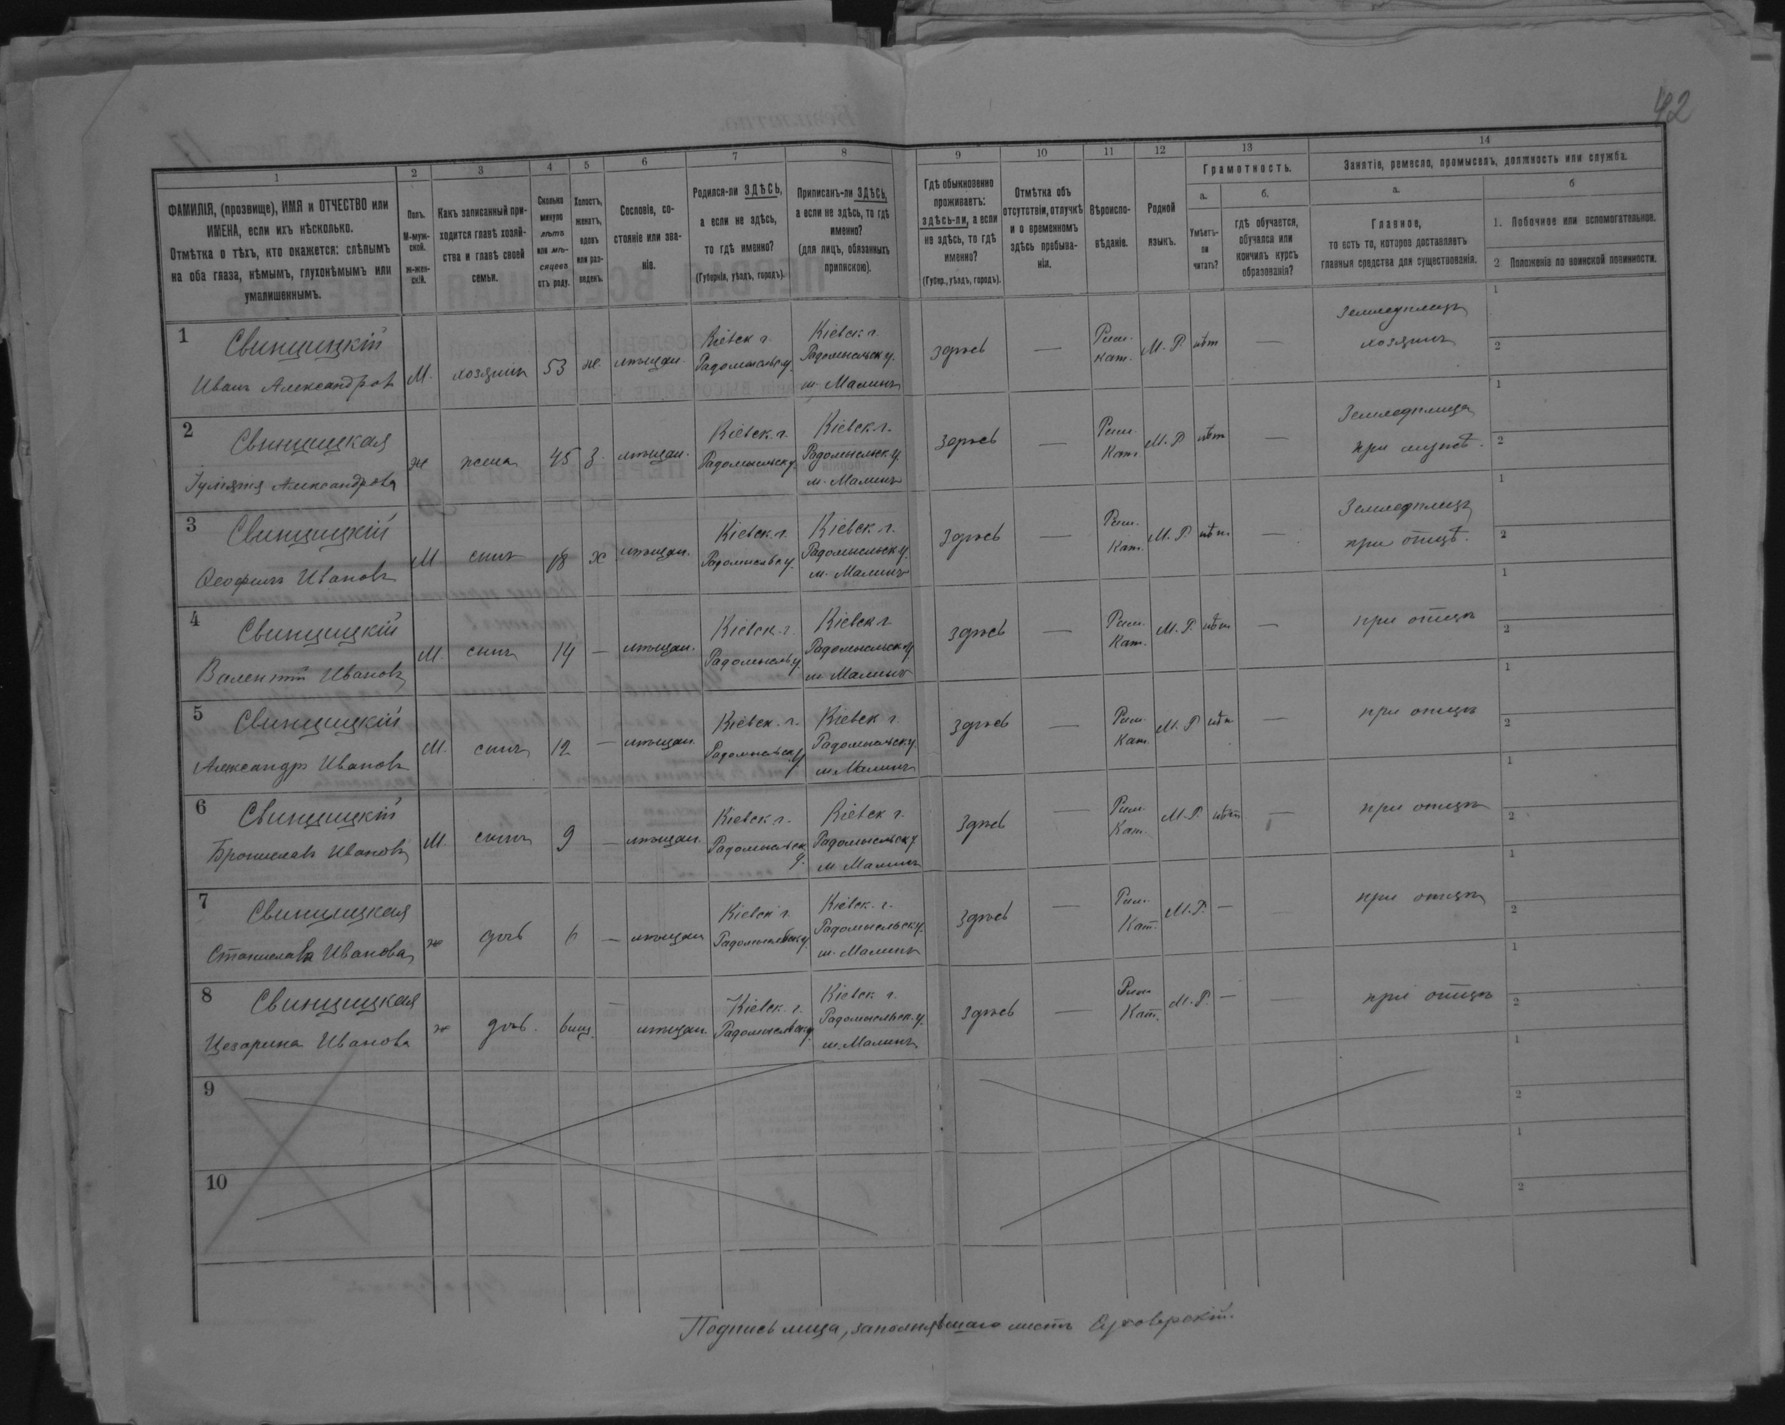 42
1 2 3 4 5 6 7 8 9 10 11 12 13 14
ФАМИЛІЯ, (прозвище), ИМЯ и ОТЧЕСТВО или
ИМЕНА, если ихъ нѣсколько.
Отмѣтка о тѣхъ, кто окажется: слѣпымъ
на оба глаза, нѣмымъ, глухонѣмымъ или
умалишеннымъ.
Полъ.
М-муж-
ской.
ж-жен-
скій.
Какъ записанный при-
ходится главѣ хозяй-
ства и главѣ своей
семьи.
Сколько
минуло
лѣтъ
или мѣ-
сяцевъ
отъ роду.
Холостъ,
женатъ,
вдовъ
или раз-
веденъ.
Сословіе, со-
стояніе или зва-
ніе.
Родился-ли ЗДѢСЬ,
а если не здѣсь,
то гдѣ именно?
(Губернія, уѣздъ, городъ).
Приписанъ-ли ЗДѢСЬ,
а если не здѣсь, то гдѣ
именно?
(для лицъ, обязанныхъ
припискою).
Гдѣ обыкновенно
проживаетъ:
здѣсь-ли, а если
не здѣсь, то гдѣ
именно?
(Губер., уѣздъ, городъ).
Отмѣтка объ
отсутствіи, отлучкѣ
и о временномъ
здѣсь пребыва-
ніи.
Вѣроиспо-
вѣданіе.
Родной
языкъ.
Грамотность.
а.
Умѣетъ-
ли
читать?
б.
гдѣ обучается,
обучался или
кончилъ курсъ
образованія?
Занятіе, ремесло, промыселъ, должность или служба.
а.
Главное,
то есть то, которое доставляетъ
главныя средства для существованія.
б
1. Побочное или вспомогательное.
2 Положеніе по воинской повинности.
1 Свинцицкій Иванъ Александровъ М. хозяинъ 53 ж. мѣщан. Кіевск г. Радомысльск у. Кіевск. г. Радомысльск у. м. Малинъ здѣсь — Рим. кат. М. Р. нѣт — Земледѣлецъ хозяинъ 1 2
2 Свинцицкая Александрова ж жена 45 з. мѣщан. Кіевск. г. Радомысльск у. Кіевск. г. Радомысльск. у. м. Малинъ здѣсь — Рим. Кат. М. Р. нѣт — Земледѣлица при мужѣ. 1 2
3 Свинцицкій Ѳеофилъ Ивановъ М. сынъ 18 х мѣщан. Кіевск. г. Радомысльск у. Кіевск. г. Радомысльск у. м. Малинъ здѣсь — Рим. Кат. М. Р. нѣт. — Земледѣлецъ при отцѣ. 1 2
4 Свинцицкій Валентій Ивановъ М. сынъ 14 — мѣщан. Кіевск. г. Радомысльск у Кіевск г. Радомысльск у м. Малинъ здѣсь — Рим. Кат. М. Р. нѣт — при отцѣ 1 2
5 Свинцицкій Александръ Ивановъ М. сынъ 12 — мѣщан. Кіевск. г. Радомысльск у Кіевск г. Радомысльск у. м. Малинъ здѣсь — Рим. Кат. М. Р. нѣт — при отцѣ 1 2
6 Свинцицкій Брониславъ Ивановъ М. сынъ 9 — мѣщан. Кіевск г. Радомысльск у. Кіевск г. Радомысльск у м. Малинъ здѣсь — Рим. Кат. М. Р. нѣт — при отцѣ 1 2
7 Свинцицкая Станислава Иванова ж дочь 6 — мѣщан Кіевск г. Радомысльск у Кіевск. г. Радомысльск у. м. Малинъ здѣсь — Рим. Кат. М. Р. — при отцѣ 1 2
8 Свинцицкая Цезарина Иванова ж дочь. — мѣщан. Кіевск. г. Радомысльск у. Кіевск. г. Радомысльск. у. м. Малинъ здѣсь — Рим Кат. М. Р. — при отцѣ 1 2
9 1 2
10 1 2
Подпись лица, заполнявшаго листъ